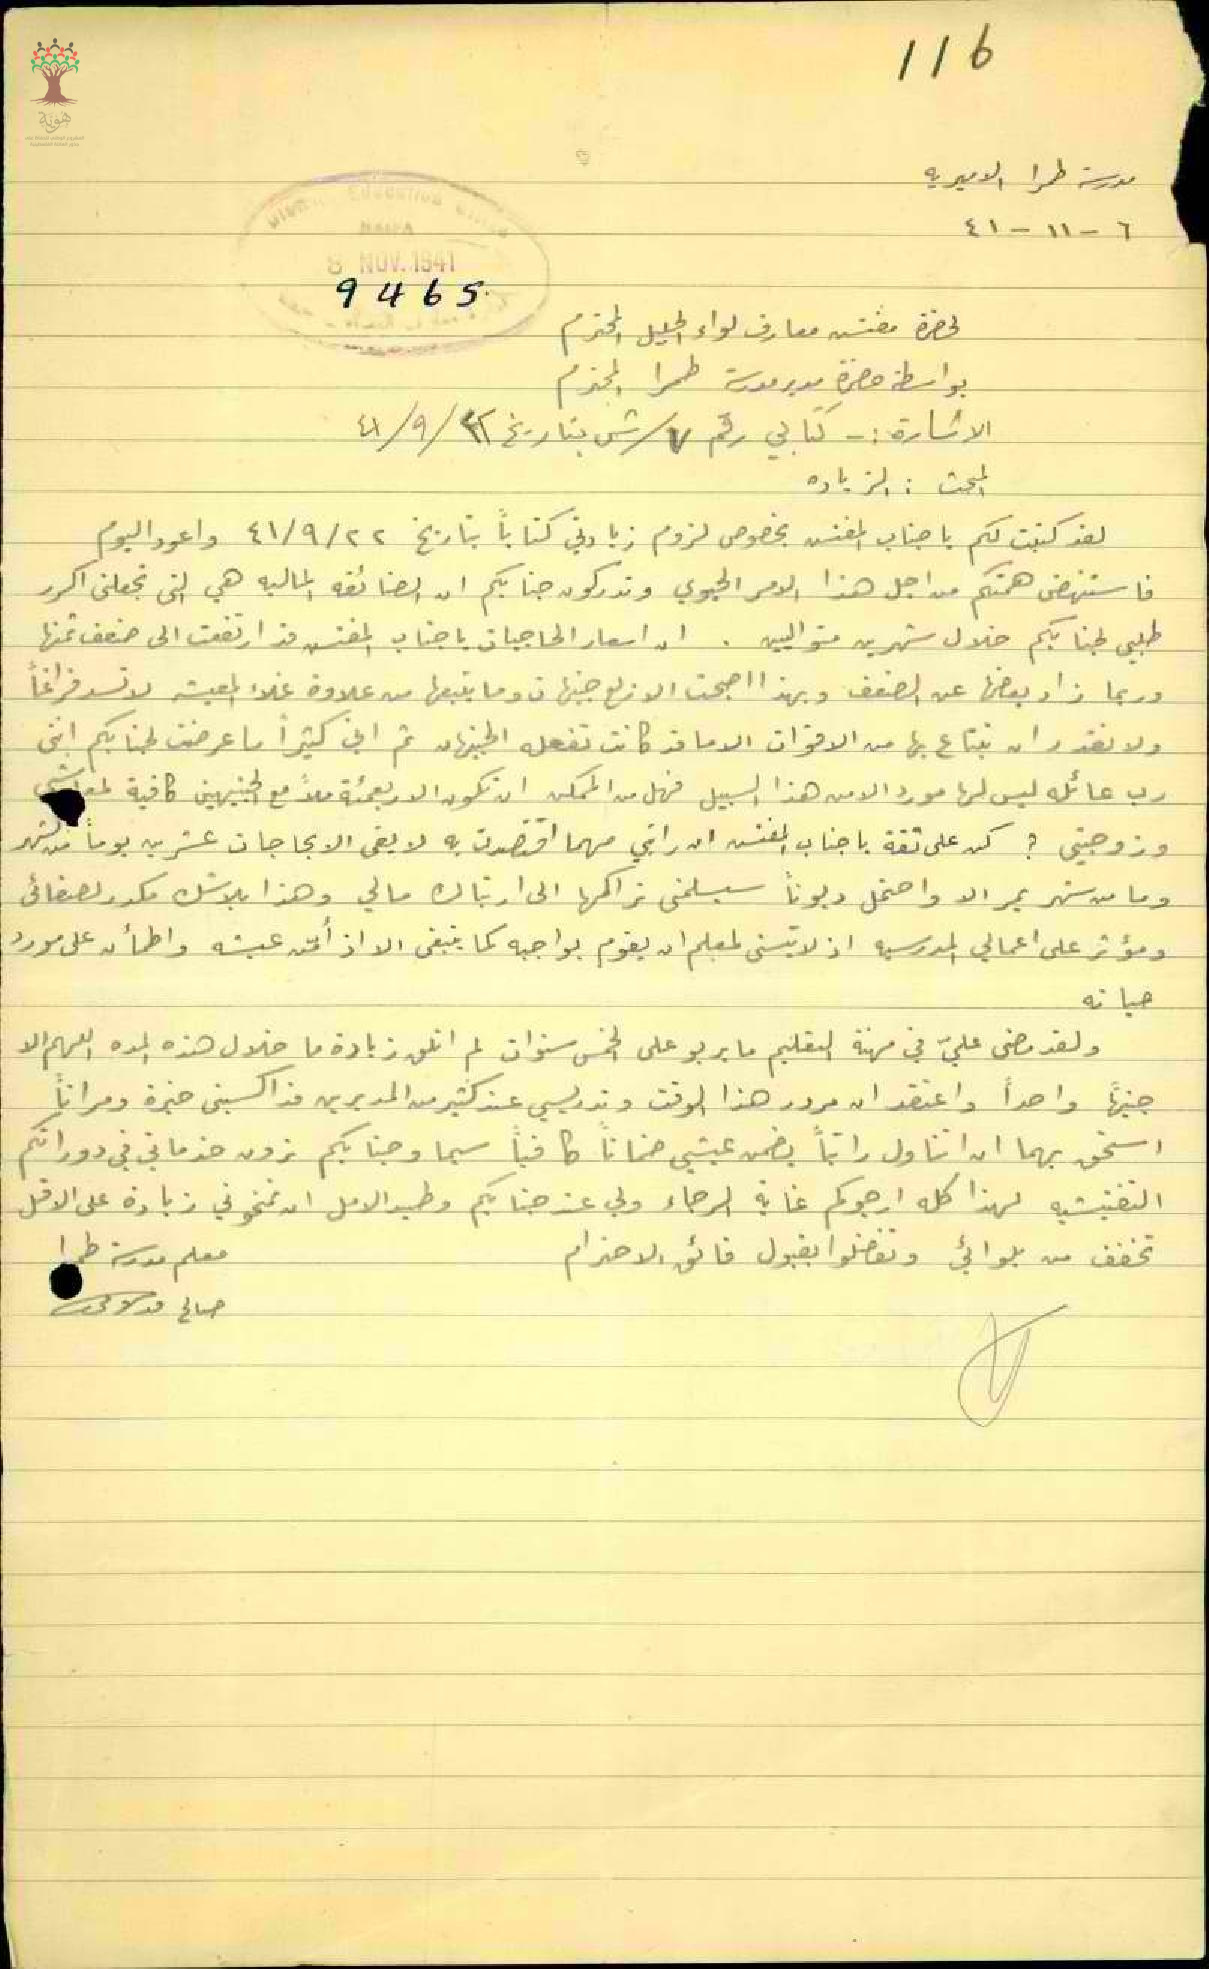 116
هوية
مدرسة طمرا الاميريه
٦ - ١١ - ٤١
District Education Office
HAIFA
8 NOV. 1941
9465
لحضرة مفتش معارف لواء الجليل المحترم
بواسطة حضرة مدير مدرسة طمرا المحترم
الاشارة :- كتابي رقم ٧/ش بتاريخ ٢٢/٩/٤١
المبحث : الزياده
لقد كتبت لكم يا جناب المفتش بخصوص لزوم زيادتي كتاباً بتاريخ ٢٢/٩/٤١ واعود اليوم
فاستنهض همتكم من اجل هذا الامر الحيوي وتدركون جنابكم ان الضائقه الماليه هي التي تجعلني اكرر
طلبي لجنابكم خلال شهرين متواليين . ان اسعار الحاجيات يا جناب المفتش قد ارتفعت الى ضعف ثمنها
وربما زاد بعضها عن الضعف وبهذا اصبحت الاربع جنيهات وما يتبعها من علاوة غلاء المعيشه لا تسد فراغاً
ولا نقدر ان نبتاع بها من الاقوات الا ما قد كانت تفعله الجنيهان ثم اني كثيراً ما عرضت لجنابكم انني
رب عائله ليس لها مورد الا من هذا السبيل فهل من الممكن ان تكون الاربعمئة ملاً مع الجنيهين كافية لمعاشي
وزوجتي ؟ كن على ثقة يا جناب المفتش ان راتبي مهما اقتصدت به لا يفي الا بحاجات عشرين يوماً من الشهر
وما من شهر يمر الا واحتمل ديوناً سيسلمني تراكمها الى ارتباك مالي وهذا بلا شك مكدر لصفائي
ومؤثر على اعمالي المدرسيه اذ لا يتسنى لمعلم ان يقوم بواجبه كما ينبغي الا اذا أمن عيشه واطمأن على مورد
حياته
ولقد مضى عليّ في مهنة التعليم ما يربو على الخمس سنوات لم اتلق زيادة ما خلال هذه المده اللهم الا
جنيهاً واحداً واعتقد ان مرور هذا الوقت وتدريسي عند كثير من المديرين قد اكسبني خبرة ومراناً
استحق بهما ان اتناول راتباً يضمن عيشي ضماناً كافياً سيما وجنابكم ترون خدماتي في دوراتكم
التفتيشيه لهذا كله ارجوكم غاية الرجاء ولي عند جنابكم وطيد الامل ان تمنحوني زيادة على الاقل
تخفف من بلوائي وتفضلوا بقبول فائق الاحترام
معلم مدرسة طمرا
صالح